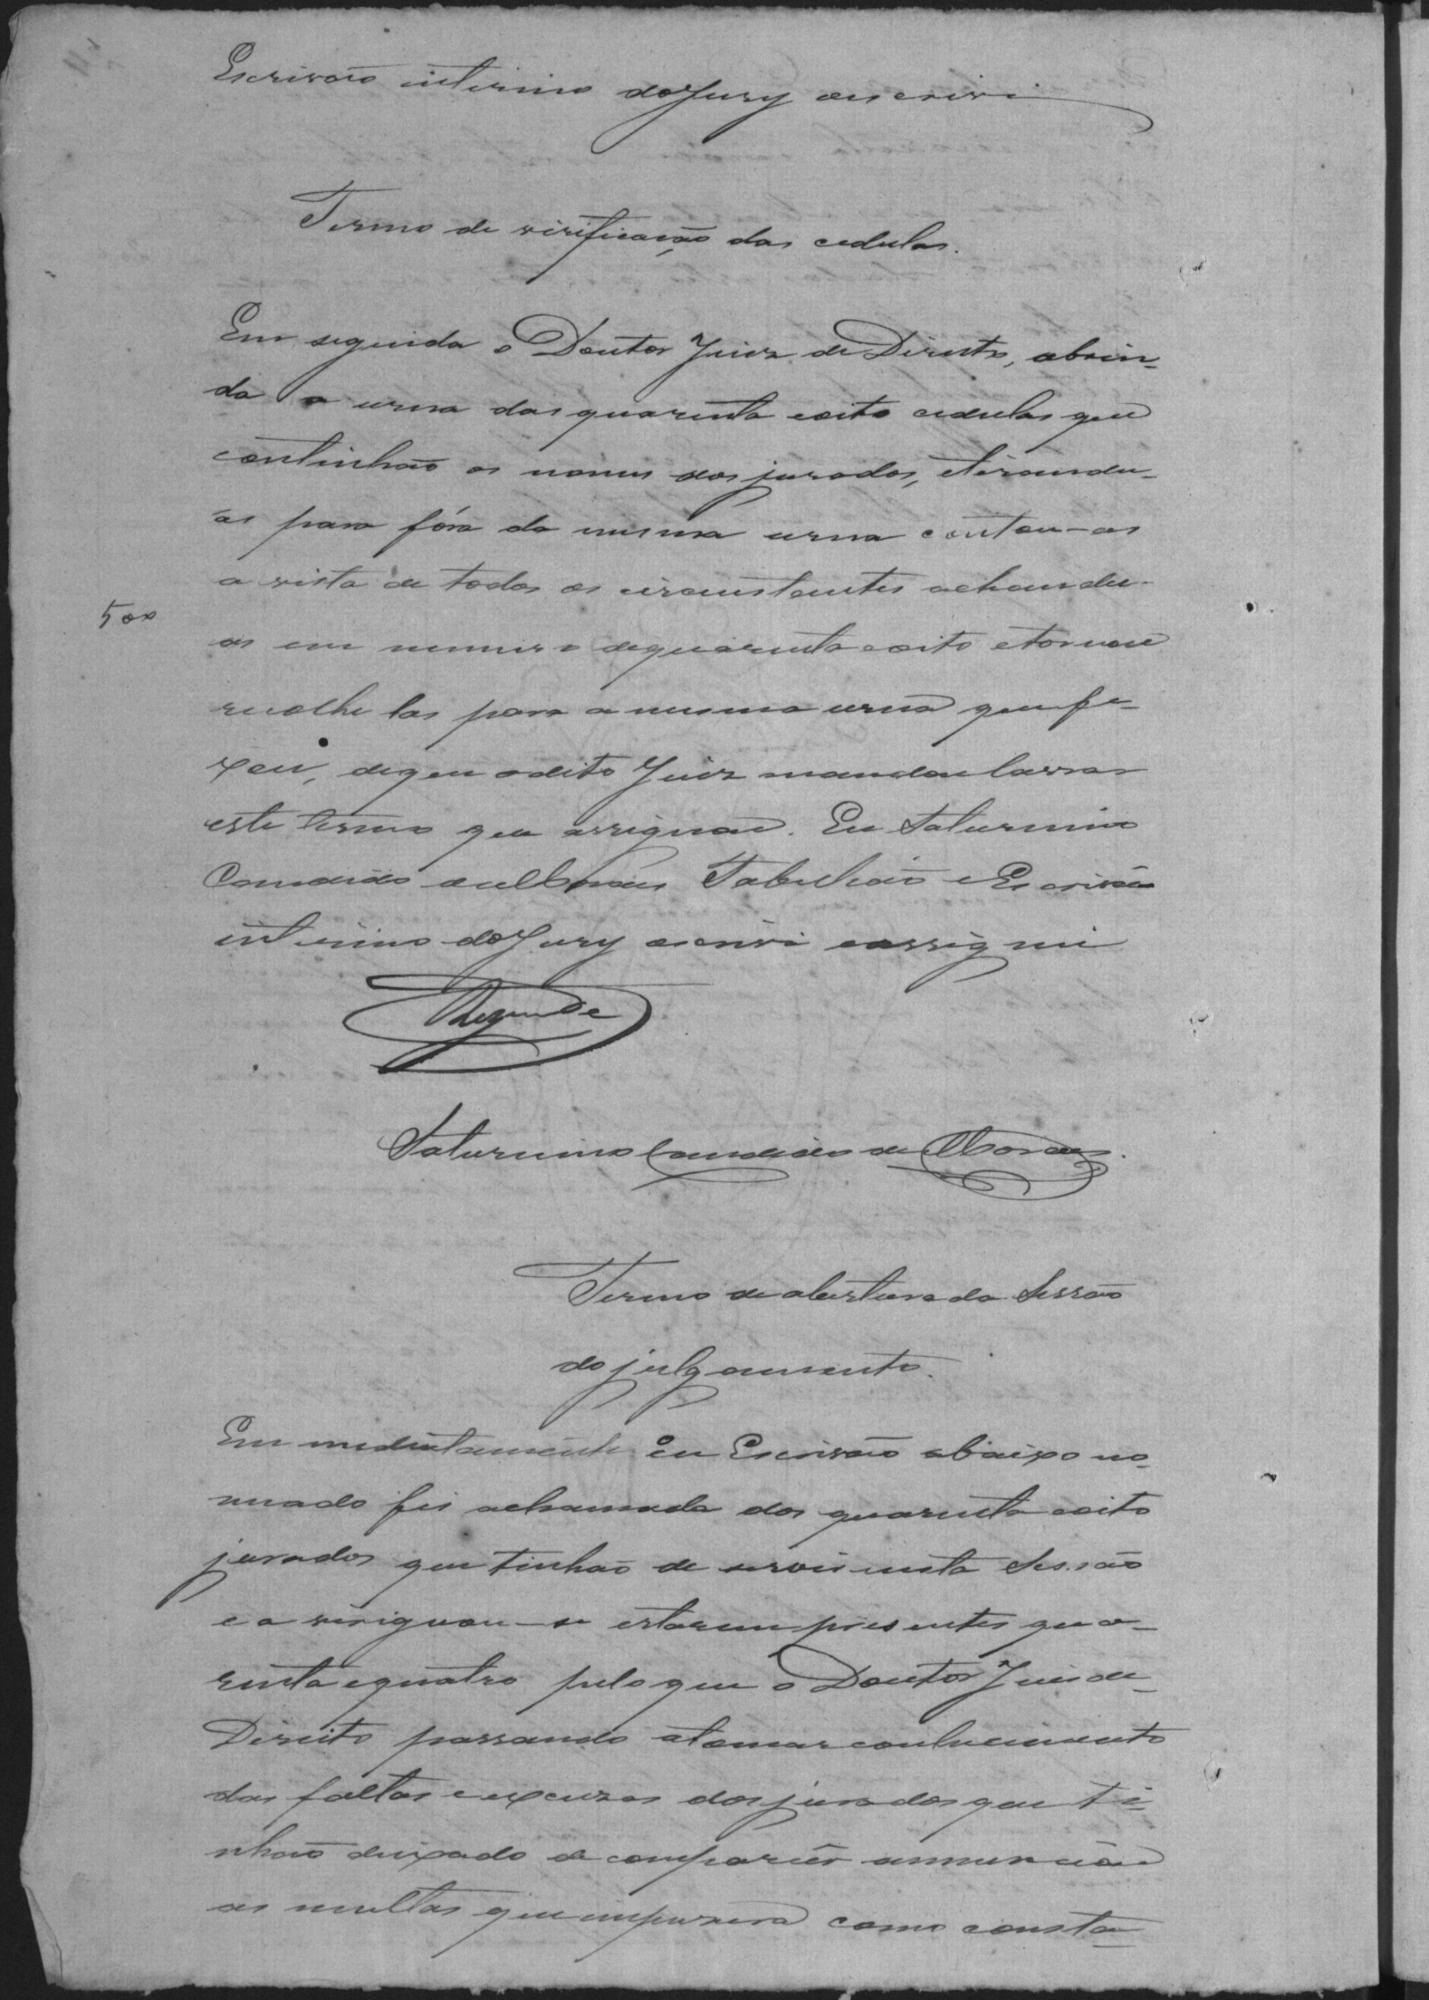 Escrivão interino do Jury o escrivi
Termo de virificação das cedulas.
Em seguida o Doutor Juiz de Direito, abrin-
do a urna das quarenta eoito cedulas que
continhão os nomes dos jurados, etirando-
as para fóra da mesma urna contou-as
a vista de todos os circunstantes achando-
500
as em numero dequarenta eoito etornou
recolhe las para a mesma urna que fe-
xou, doque odito Juiz mandou lavrar
este termo que assignou. Eu Saturnino
Candido de Moraes Tabelião e Escrivão
interino do Jury escrivi eassignei
Rezende
Saturnino Candido de Moraes.
Termo de abertura da Sessão
do julgamento.
Em mediatamente eu Escrivão abaixo no-
miado fis achamada dos quarenta eoito
jurados que tinhão de servir nesta Sessão
e a viriguou-se estarem presentes qua-
renta equatro pelo que o Doutor Juis de
Direito passando atomar conhecimento
das faltas e excuzas dos jurados que ti-
nhão deixado de comparecer annunciou
as multas que impuzera como consta-